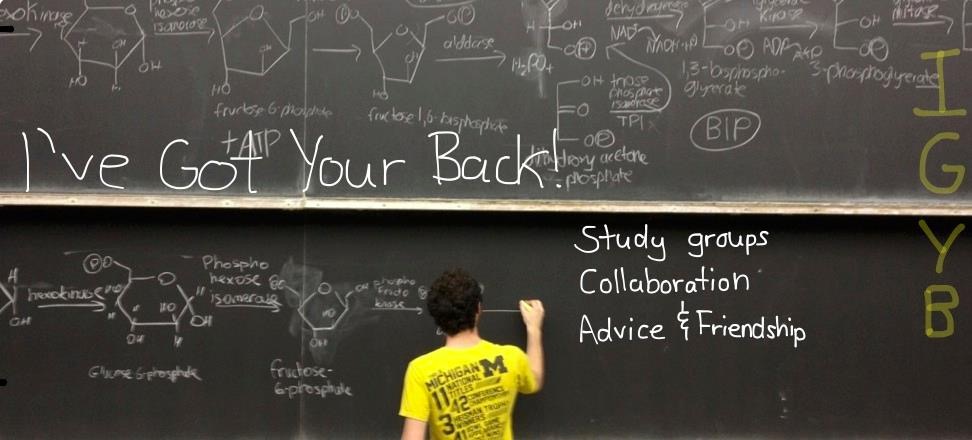 phospho
hexose
isomerase
OH
HO
OH
HO
fructose 6-phosphate
+ATP
HO
fructose 1,6-bisphosphate
aldolase
H₂PO₄
OH
OH
triose
phosphate
isomerase
TPI
dihydroxy acetone
phosphate
dehydrogenase
NAD+
NADH+H
1,3-bisphospho-
glycerate
kinase
ADP
ATP
3-phosphoglycerate
mutase
BIP
I've Got Your Back!
I
G
Y
B
hexokinase
OH
P
Phospho
hexose
isomerase
OH
H
OH
Glucose 6-phosphate
HO
OH
fructose-
6-phosphate
phospho
fructo
kinase
Study groups
Collaboration
Advice & Friendship
MICHIGAN M
11 NATIONAL
TITLES
42 CONFERENCE
CHAMPIONSHIPS
3 HEISMAN TROPHY
WINNERS
41 BOWL GAME